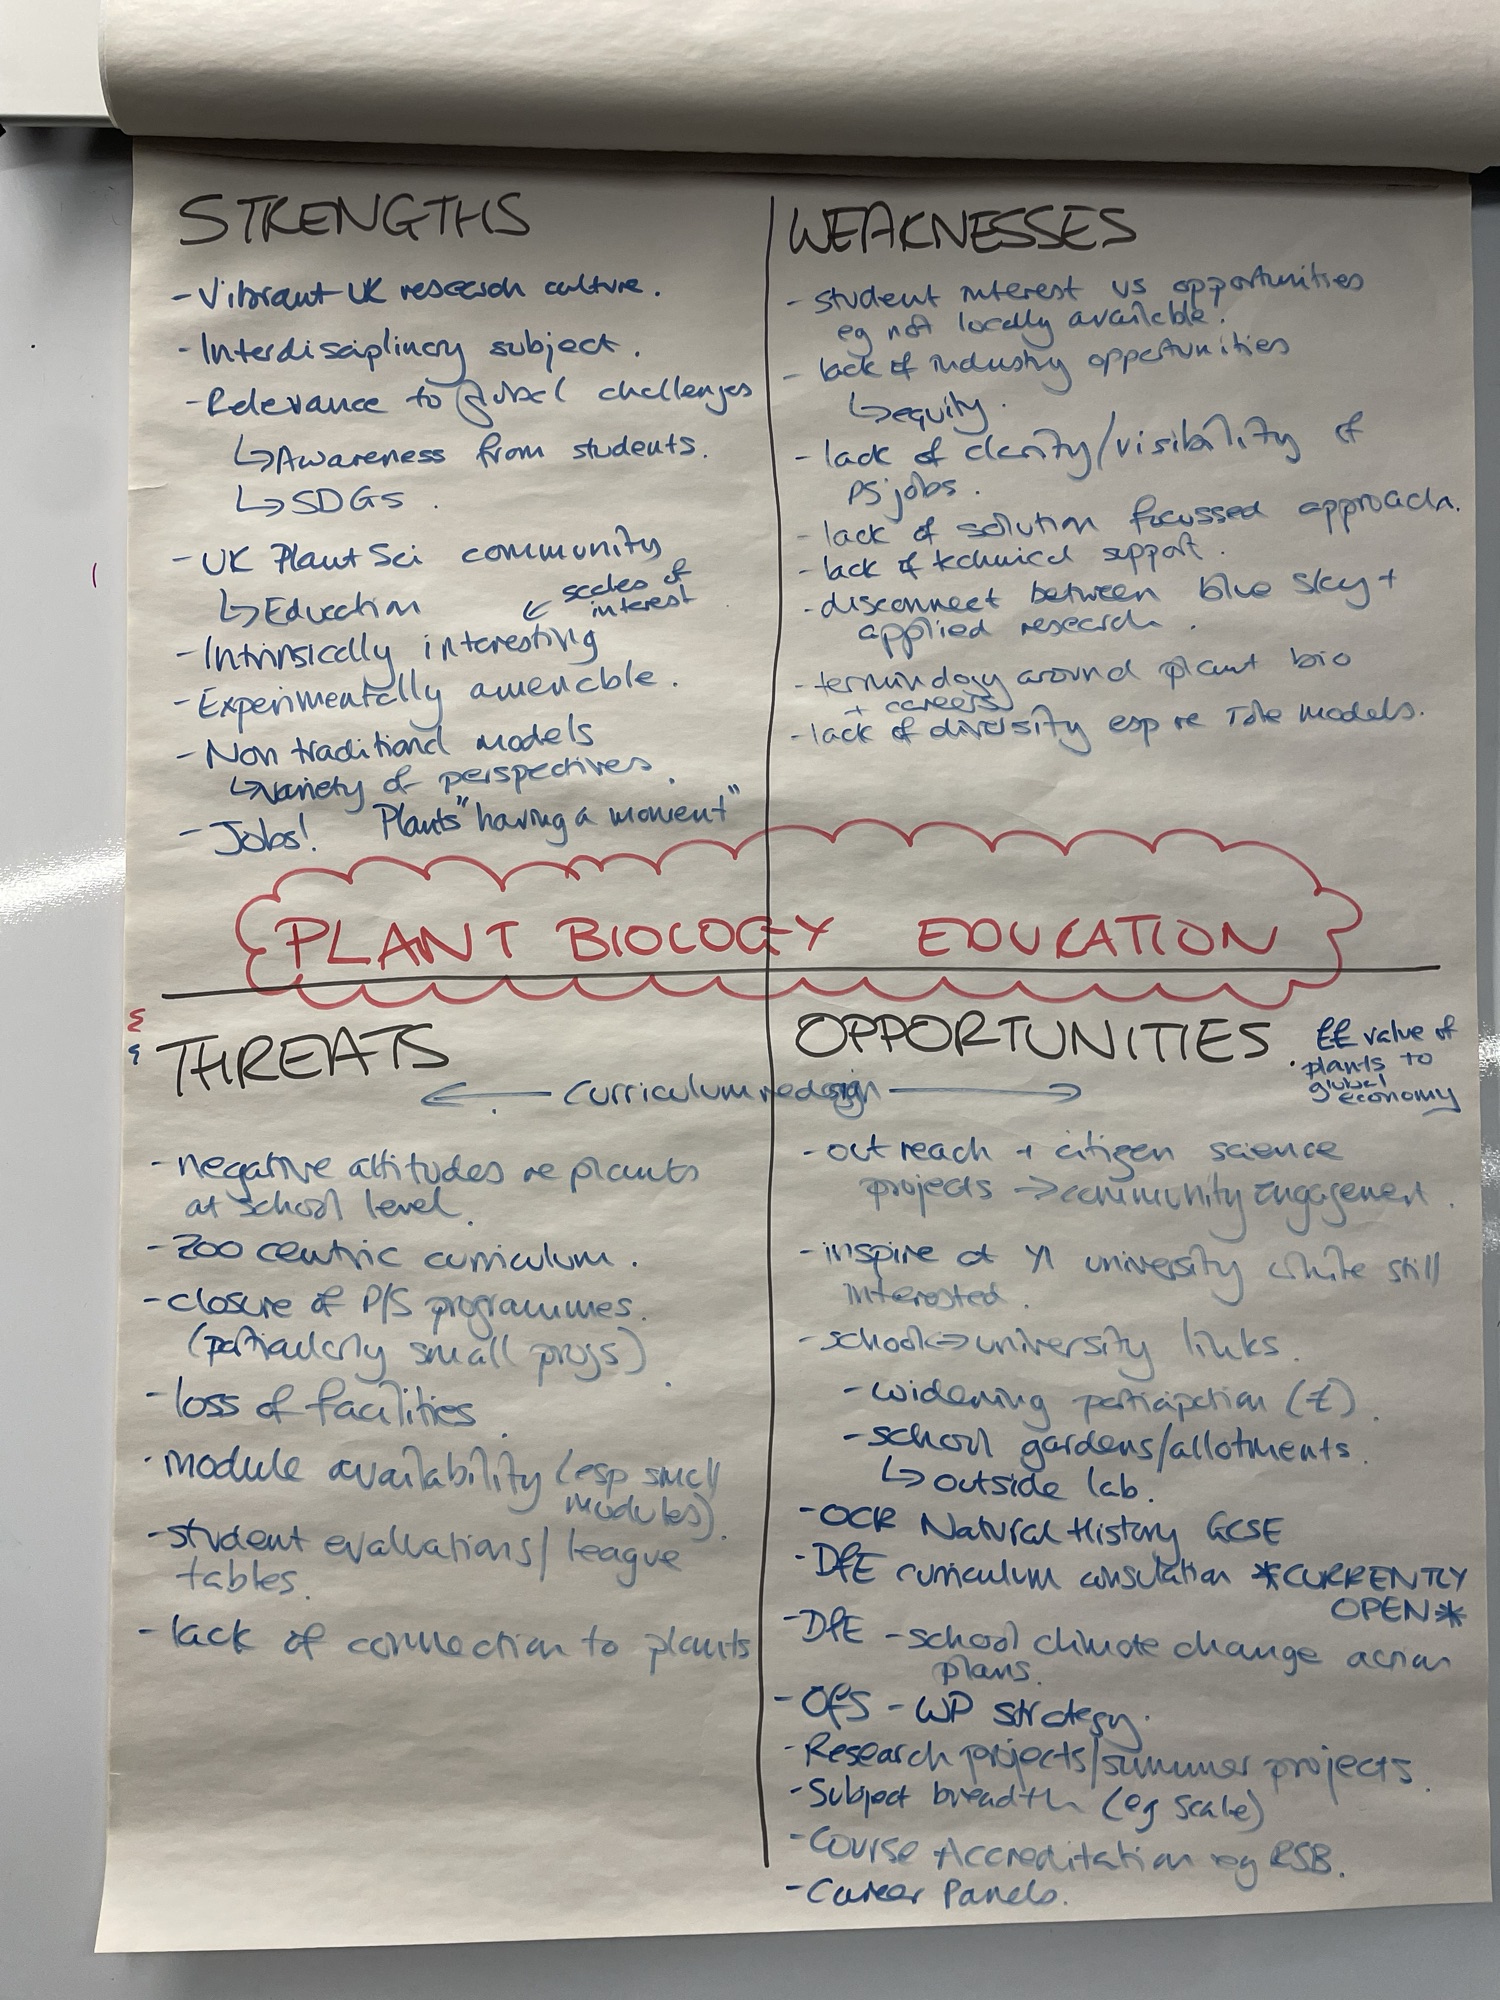 STRENGTHS
- Vibrant UK research culture.
- Interdisciplinary subject.
- Relevance to global challenges
↳ Awareness from students.
↳ SDGs.
- UK Plant Sci community
↳ Education
↙ scales of
interest
- Intrinsically interesting
- Experimentally amenable.
- Non traditional models
↳ variety of perspectives.
- Jobs! Plants "having a moment"
WEAKNESSES
- student interest vs opportunities
eg not locally available.
- lack of industry opportunities
↳ equity.
- lack of clarity/visibility of
PS jobs.
- lack of solution focussed approach.
- lack of technical support.
- disconnect between blue sky +
applied research.
- terminology around plant bio
+ careers
- lack of diversity esp re role models.
PLANT BIOLOGY EDUCATION
THREATS
← Curriculum redesign →
- negative attitudes re plants
at school level.
- zoo centric curriculum.
- closure of P/S programmes.
(particularly small progs)
- loss of facilities.
- module availability (esp small
modules).
- student evaluations/league
tables.
- lack of connection to plants
OPPORTUNITIES
. ££ value of
plants to
global
economy
- outreach + citizen science
projects → community engagement.
- inspire at Y1 university while still
interested.
- school ⇒ university links.
- widening participation (£).
- school gardens/allotments.
↳ outside lab.
- OCR Natural History GCSE
- DfE curriculum consulation *CURRENTLY
OPEN*
- DfE - school climate change action
plans.
- OfS - WP strategy.
- Research projects/summer projects.
- Subject breadth (eg scale)
- Course Accreditation eg RSB.
- Career Panels.